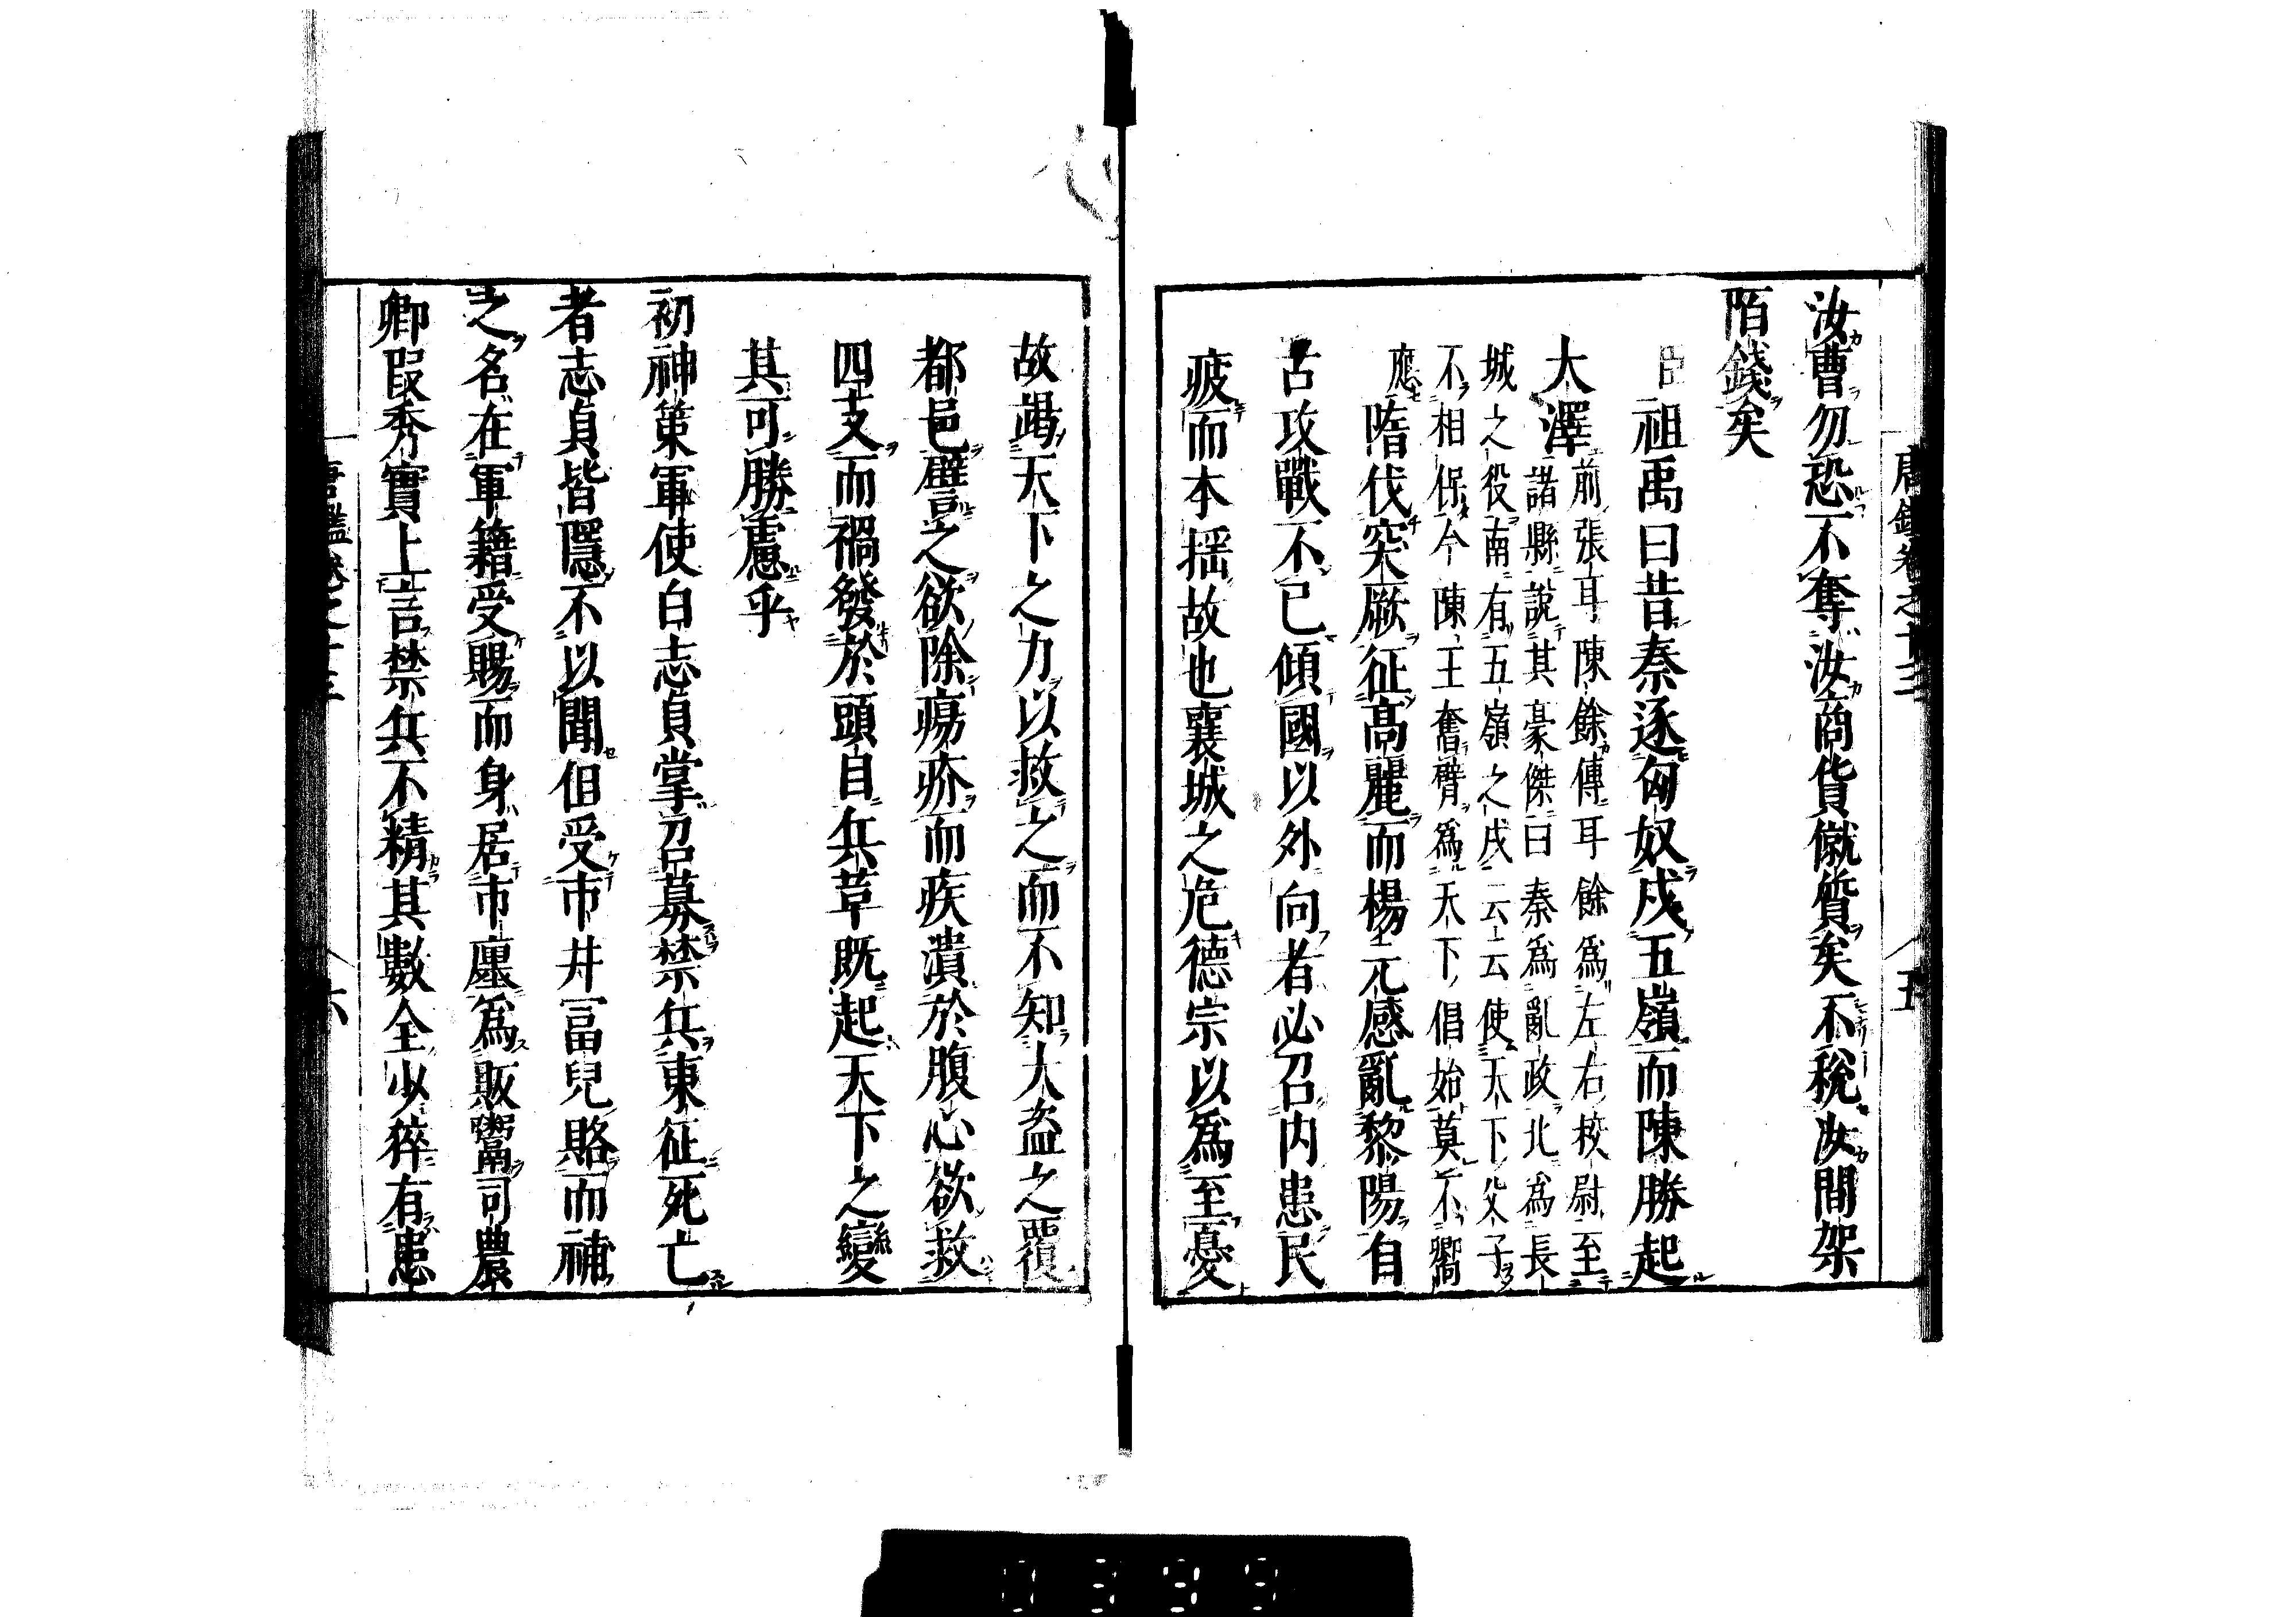 唐鑑卷之十三
五
汝曹勿恐不奪汝商貨僦質矣不稅汝間架
陌錢矣
臣祖禹曰昔秦逐匈奴戍五嶺而陳勝起
大澤
前張耳陳餘傳耳餘爲左右校尉至
諸縣說其豪傑曰秦爲亂政北爲長
城之役南有五嶺之戍云云使天下父子
不相保今陳王奮臂爲天下倡始莫不響
應
隋伐突厥征高麗而楊元感亂黎陽自
古攻戰不已傾國以外向者必召内患民
疲而本揺故也襄城之危德宗以爲至憂
故竭天下之力以救之而不知大盗之覆
都邑譬之欲除瘍疥而疾潰於腹心欲救
四支而禍發於頭目兵革既起天下之變
其可勝慮乎
初神策軍使白志貞掌召募禁兵東征死亡
者志貞皆隱不以聞但受市井冨兒賂而補
之名在軍籍受賜而身居市廛爲販鬻司農
卿叚秀實上言禁兵不精其數全少猝有患
唐鑑卷之十三
六
0399